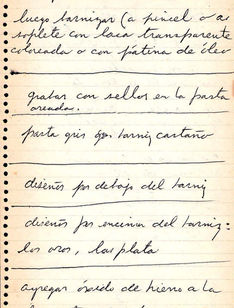 luego barnizar (a pincel o a
soplete con laca transparente
coloreada o con pátina de óleo
grabar con sellos en la pasta
oreada.
pasta gris barniz castaño
diseños por debajo del barniz
diseños por encima del barniz:
los oros, las plata
agregar óxido de hierro a la